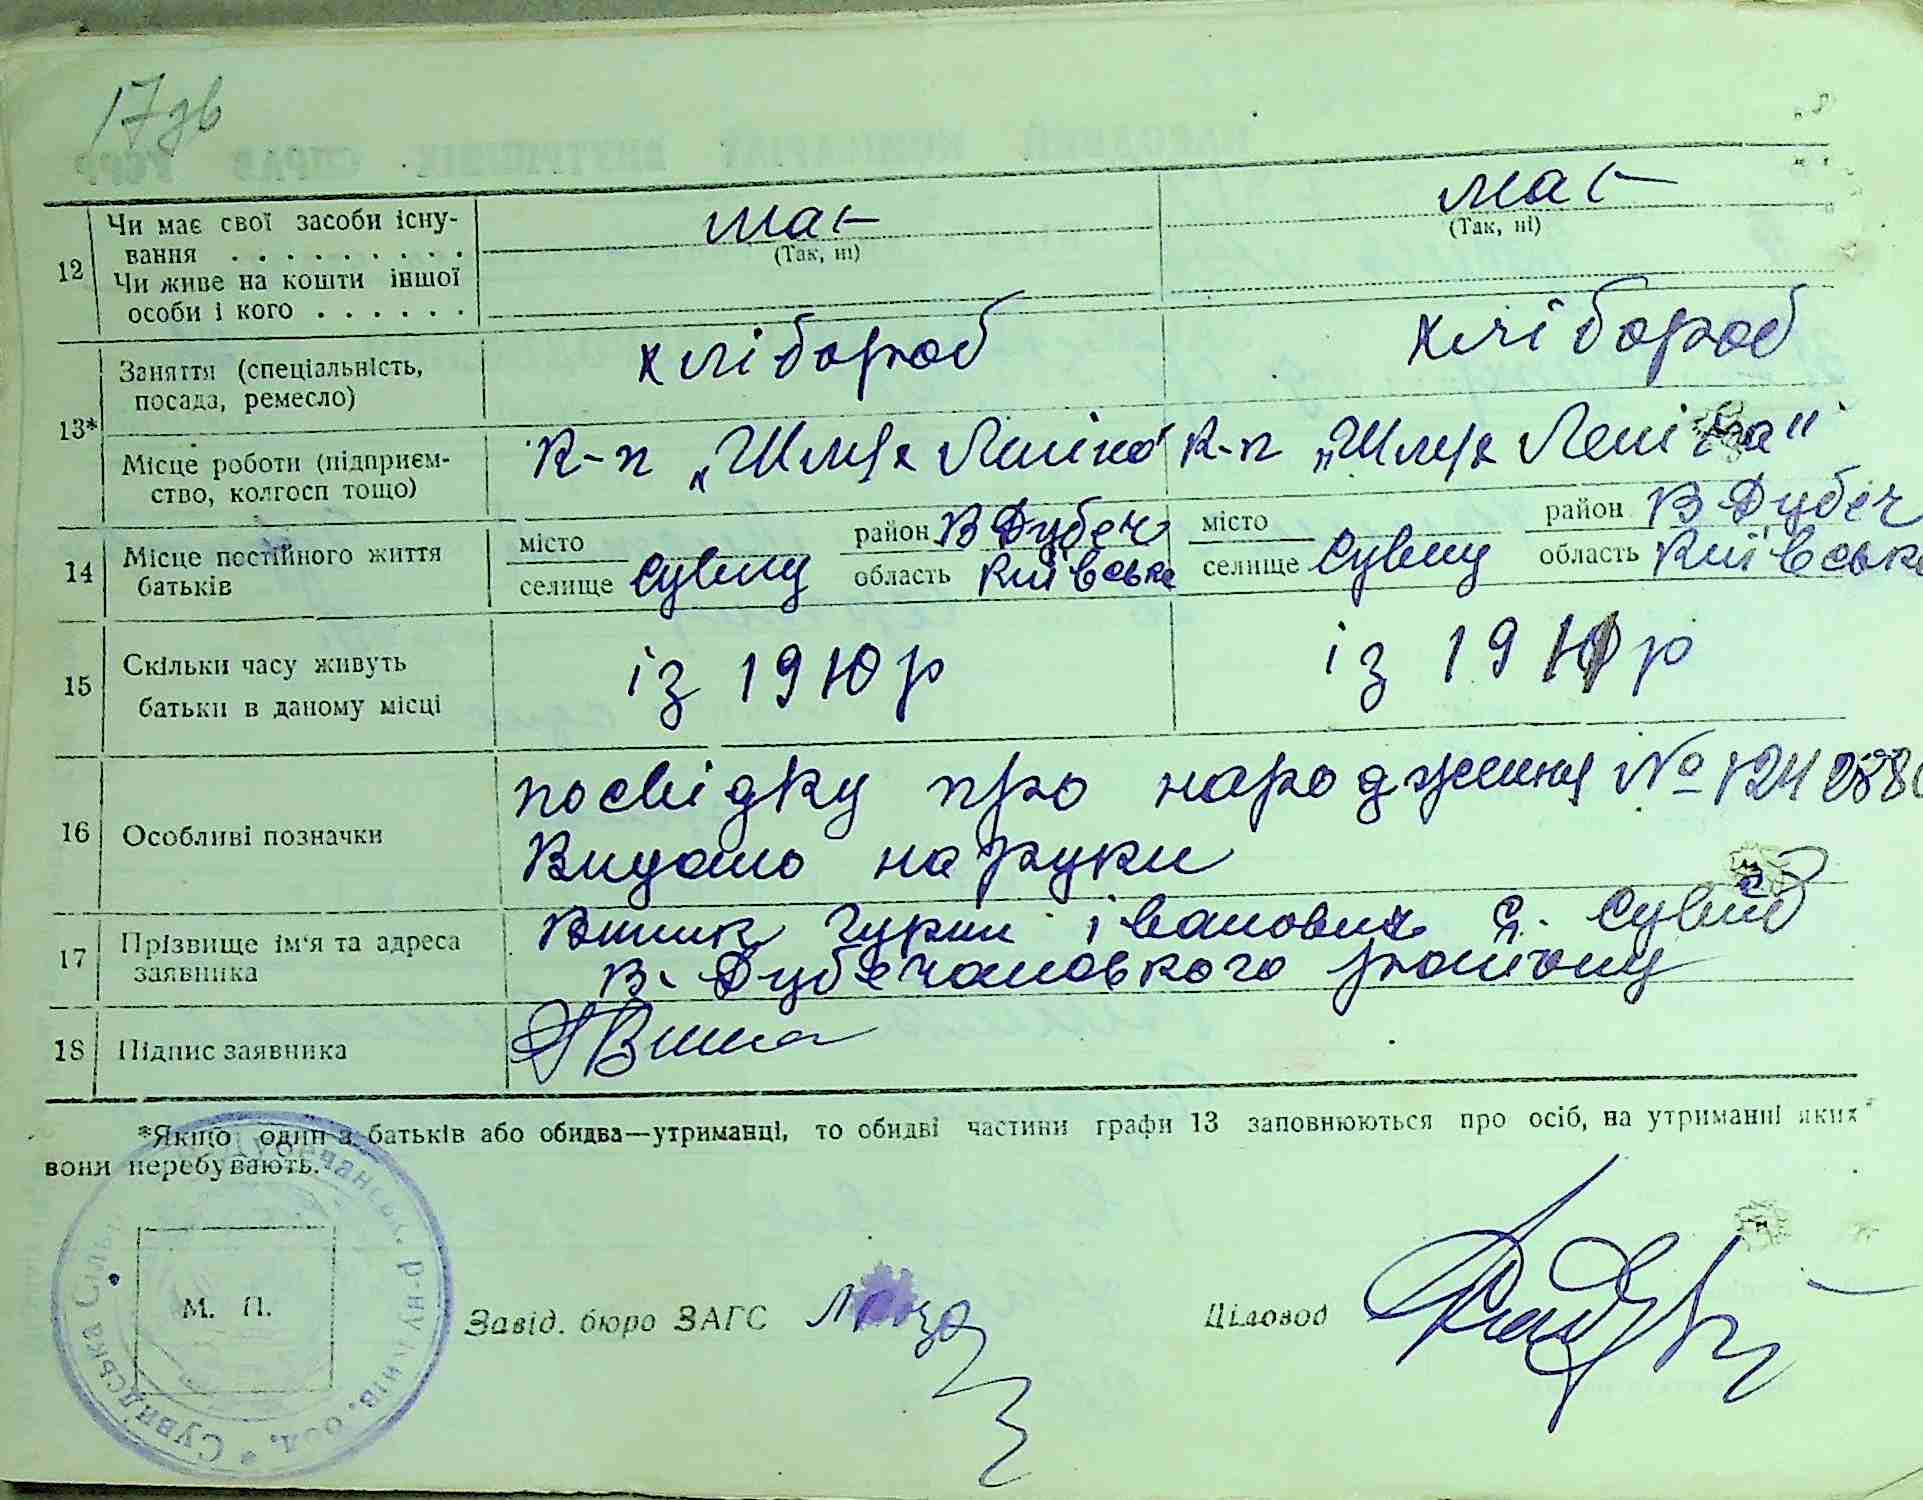 17зв
12 Чи має свої засоби існу- так так
вання . . . . . . . . . (Так, ні) (Так, ні)
Чи живе на кошти іншої
особи і кого . . . . . .
13* Заняття (спеціальність, хлібороб хлібороб
посада, ремесло)
Місце роботи (підприєм- к-п „Шлях Леніна" к-п „Шлях Леніна"
ство, колгосп тощо)
14 Місце постійного життя місто район В Дубеч місто район В Дубеч
батьків селище Сувид область Київська селище Сувид область Київська
15 Скільки часу живуть із 19 р із 19 р
батьки в даному місці
16 Особливі позначки посвідку про народження №
Видано на руки
17 Прізвище ім'я та адреса Іванович С. Сувид
заявника В. Дубечанського району
18 Підпис заявника
*Якщо один з батьків або обидва—утриманці, то обидві частини графи 13 заповнюються про осіб, на утриманні яких
вони перебувають.
Сувидська Сільрада Дубечанськ. р-ну Київ. обл.
М. П.
Завід. бюро ЗАГС Діловод